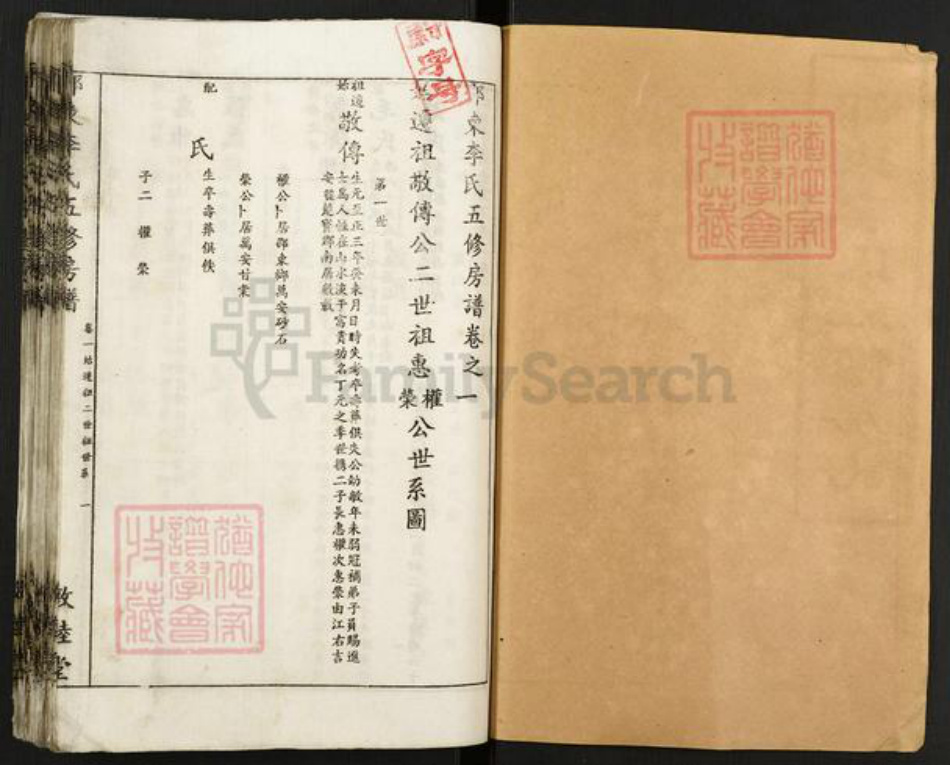 邵東李氏五修房譜卷之一
始遷祖敬傳公二世祖惠權榮公世系圖
第一世
始遷祖
敬傳
生元至正三年癸未月日時失考卒壽葬俱失公幼敏年未弱冠補弟子員賜進
士爲人性在山水淡于富貴功名丁元之季世携二子長惠權次惠榮由江右吉
權公卜居邵東鄉萬安砂石
榮公卜居萬安甘棠
配
氏
生卒壽葬俱佚
子二 權 榮
卷一始遷祖二世祖世系 一
敦睦堂
邵東李氏五修房譜
字号
譜學會
收藏
譜學會
收藏
FamilySearch